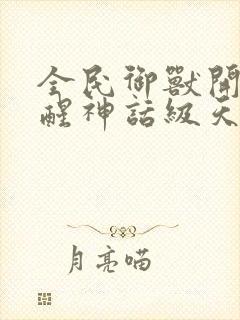 全民御獸開
醒神話級天
月亮喵